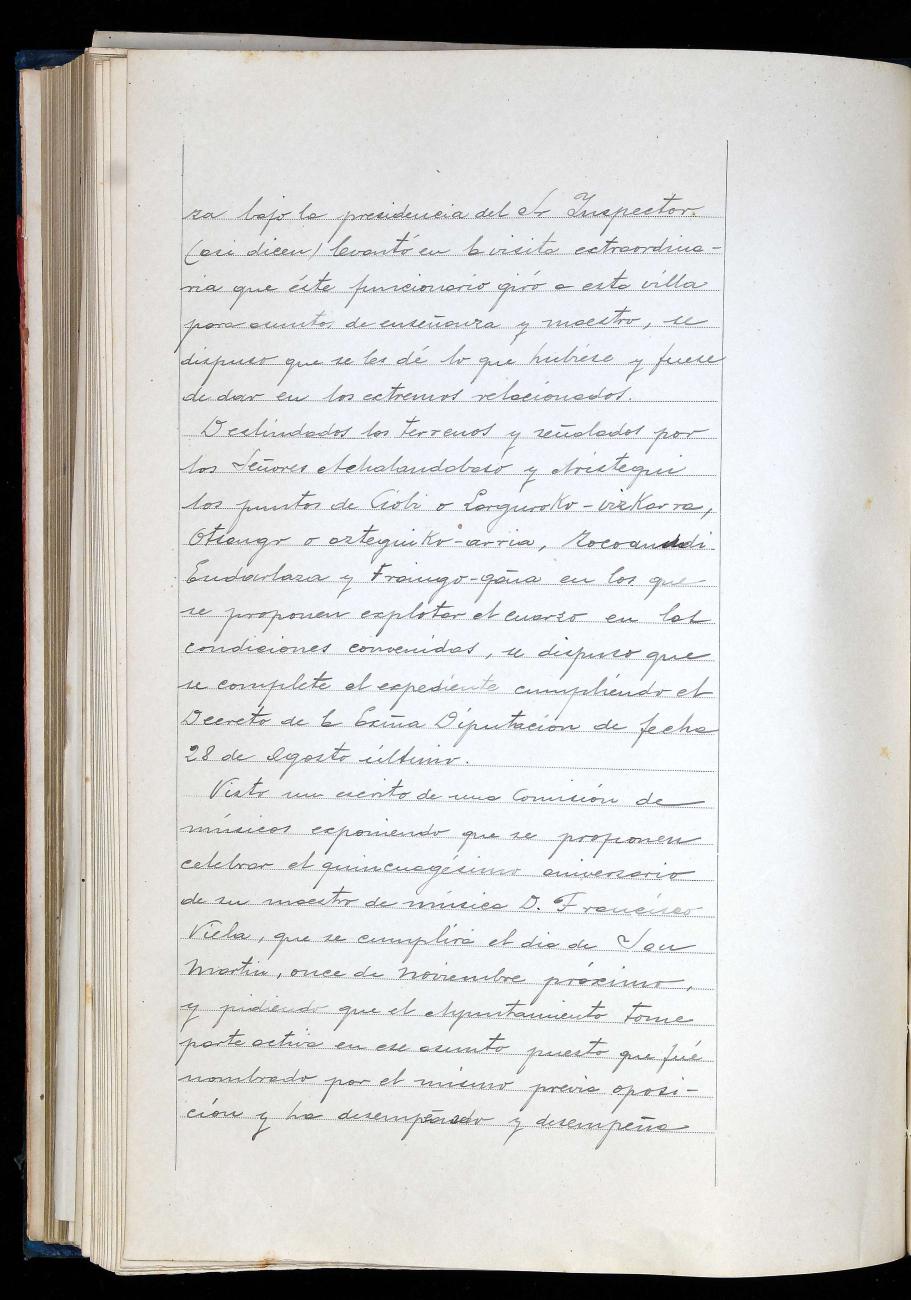 za bajo la presidencia del Sr Inspector.
(asi dicen) levantó en la visita extraordina-
ria que éste funcionario giró a esta villa
para asuntos de enseñanza y maestro, se
dispuso que se les dé lo que hubiese y fuese
de dar en los extremos relacionados.
Deslindados los terrenos y señalados por
los Señores Achalandabaso y Aristegui
los puntos de o Larguroko-vizkarra,
o azteguiko-arria,
Endarlaza y Fraingo-gaña en los que
se proponen explotar el cuarzo en las
condiciones convenidas, se dispuso que
se complete el expediente cumpliendo el
Decreto de la Exma Diputación de fecha
28 de Agosto último.
Visto un escrito de una Comisión de
músicos exponiendo que se proponen
celebrar el quincuagésimo aniversario
de su maestro de música D. Francisco
Viela, que se cumplirá el dia de San
Martin, once de Noviembre próximo,
y pidiendo que el Ayuntamiento tome
parte activa en ese asunto puesto que fué
nombrado por el mismo previa oposi-
ción y ha desempeñado y desempeña